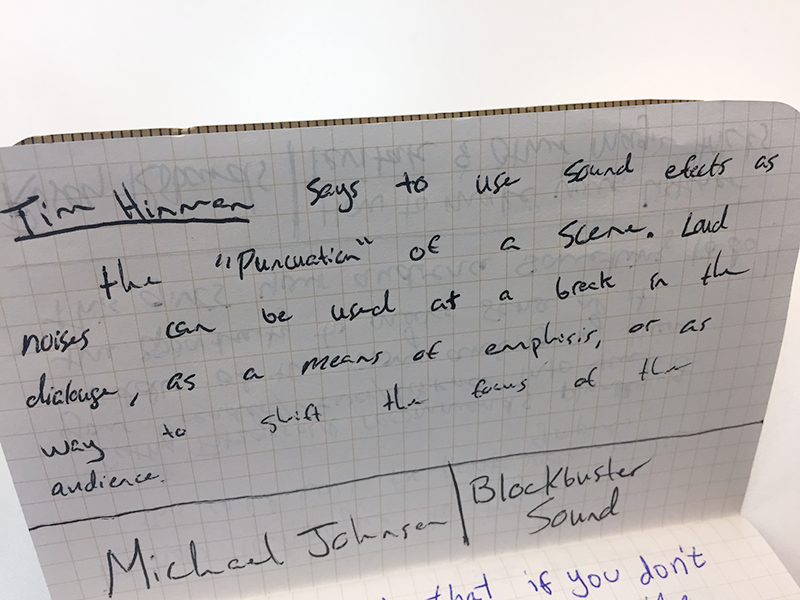 Tim Hinman says to use sound efects as
the "Puncuation" of a scene. Loud
noises can be used at a break in the
dialouge, as a means of emphisis, or as
way to shift the focus of the
audience.
Michael Johnsen | Blockbuster
Sound
that if you don't